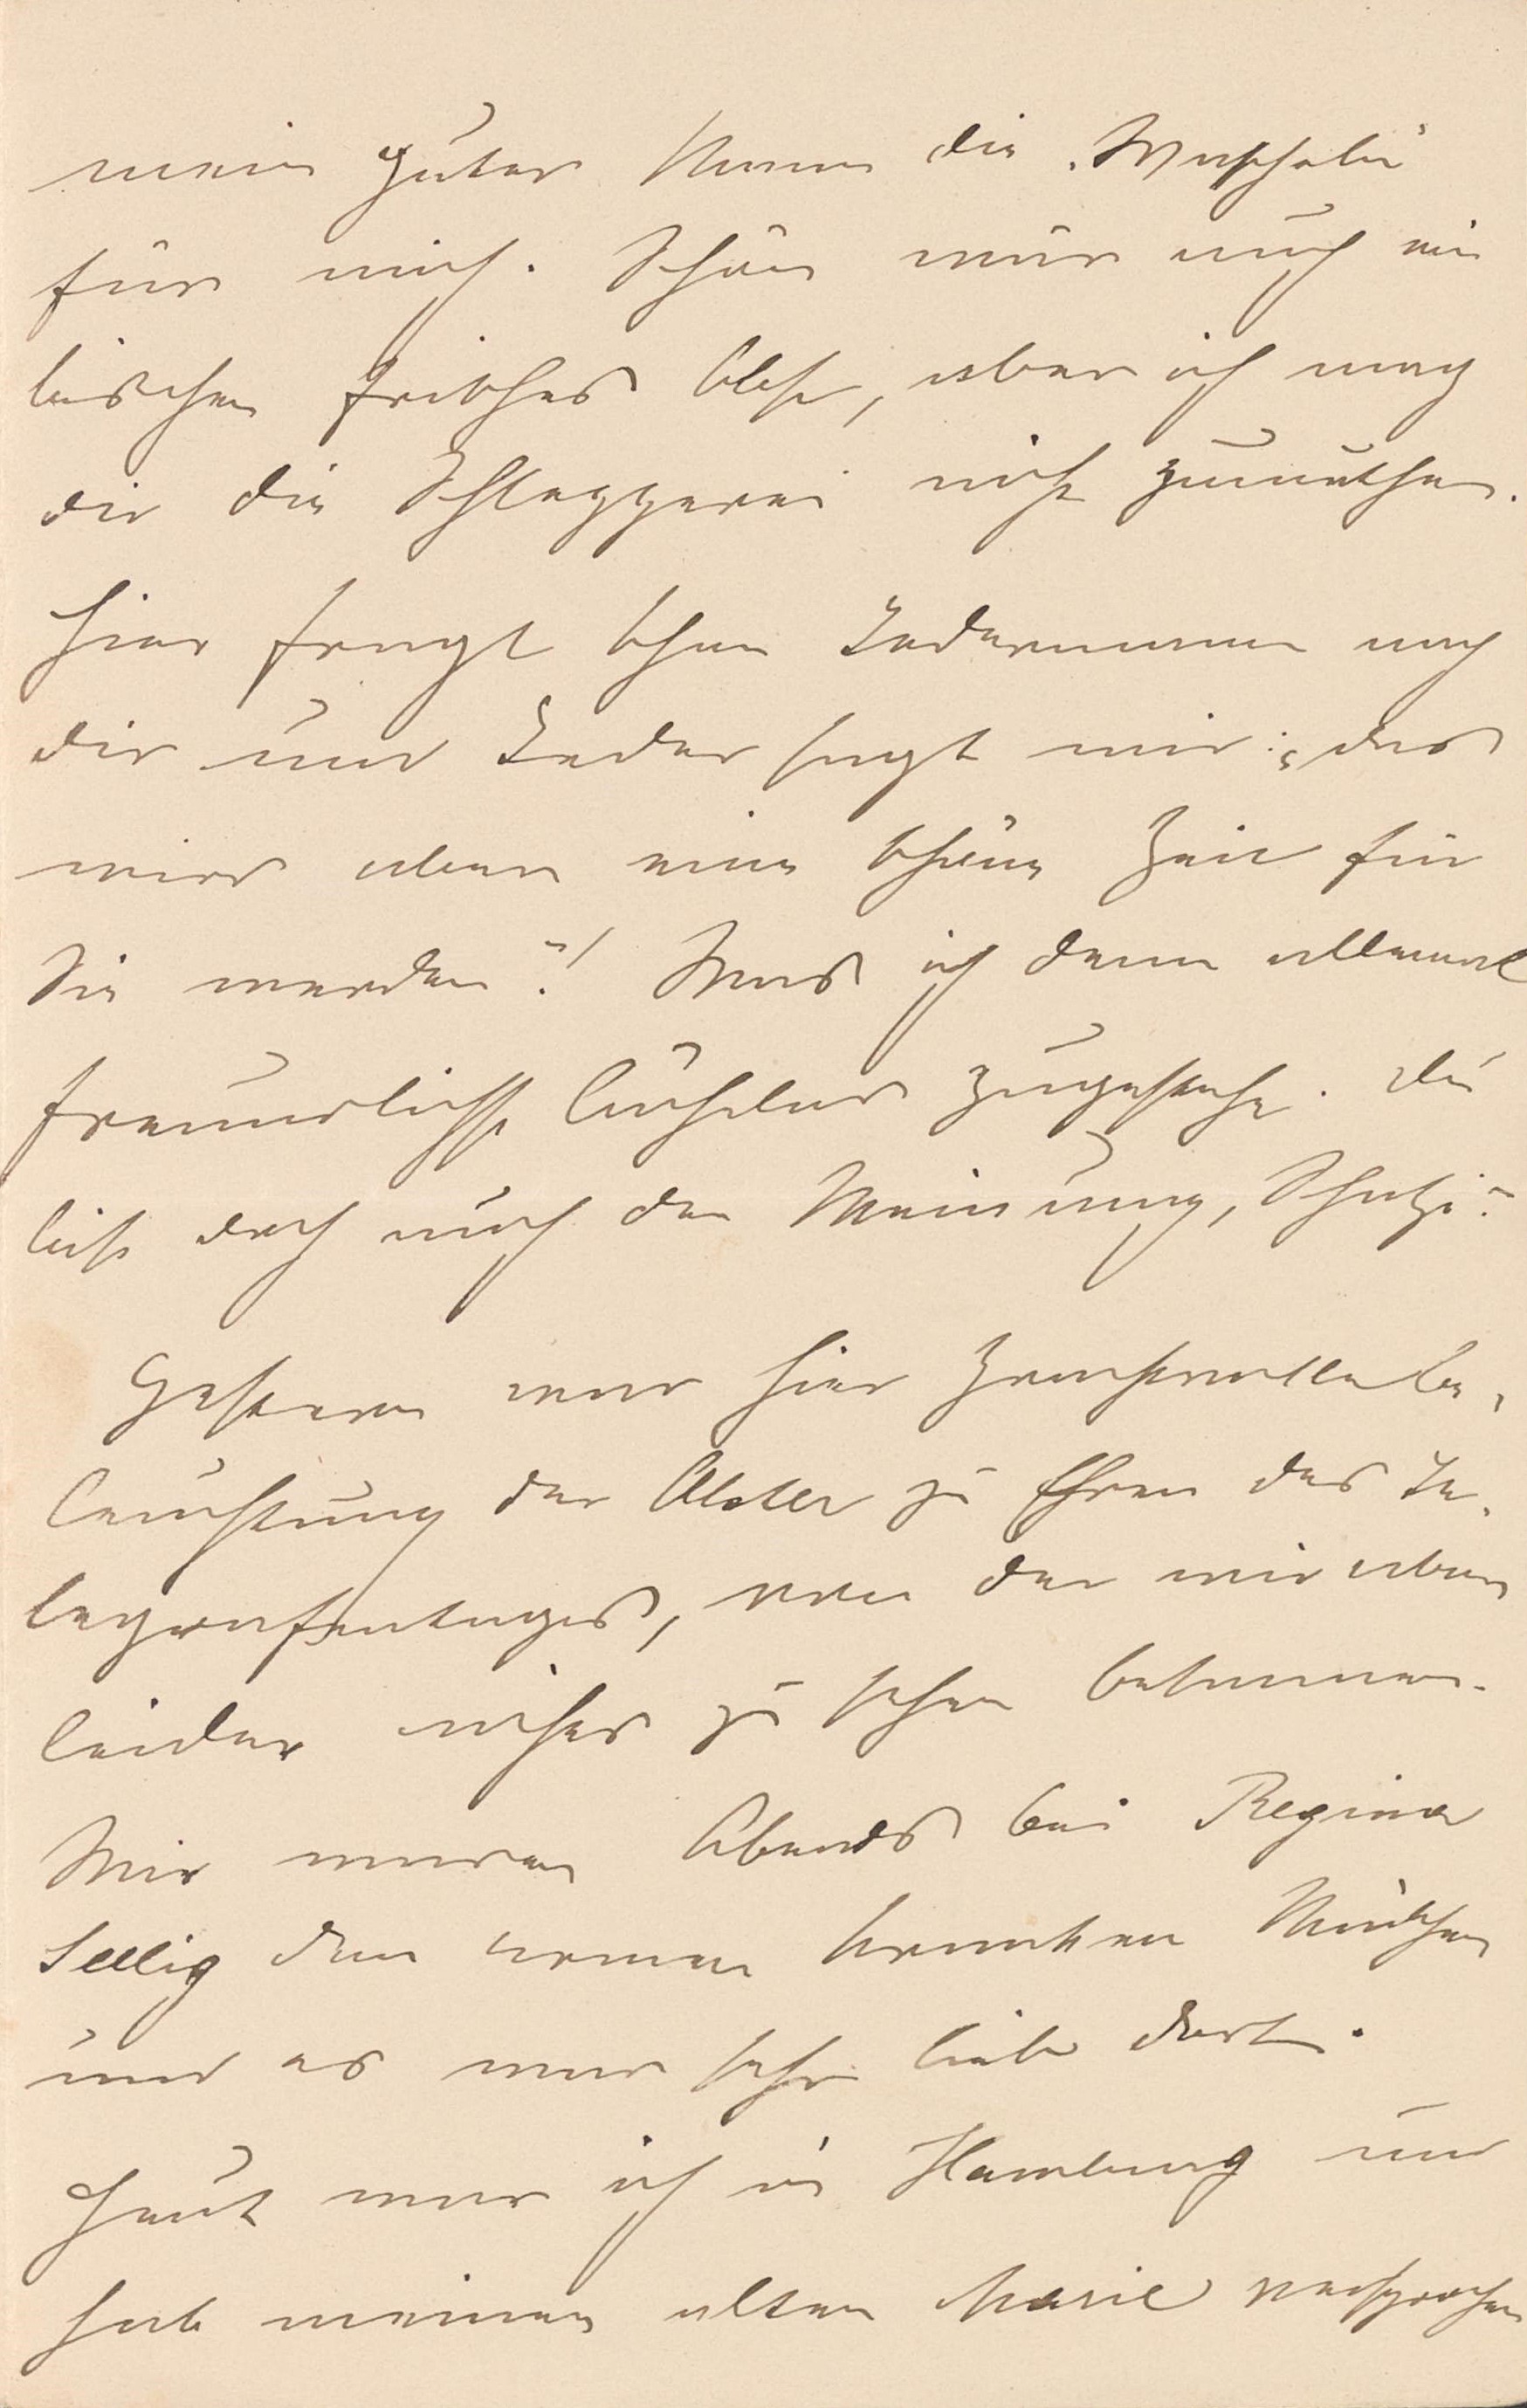 mein guter Mann die
für mich. Schön wär auch ein
bischen frisches Obst, aber ich mag
dir die Schlepperei nicht zumuthen.
Hier fragt schon Jedermann nach
dir und Jeder sagt mir: „das
wird aber eine schöne Zeit für
Sie werden“! Was ich denn allemal
freundlichst lächelnd zugestehe. Du
bist doch auch der Meinung, Schatzi?
Gestern war hier prachtvolle Be-
leuchtung der Alster zu Ehren des Te-
legrafentages, von der wir aber
leider nichts zu sehen bekamen.
Wir waren Abends bei Regina
Seelig dem armen kranken Mädchen
und es war sehr lieb dort.
Heut war ich in Hamburg und
hab meiner alten Marie versprochen